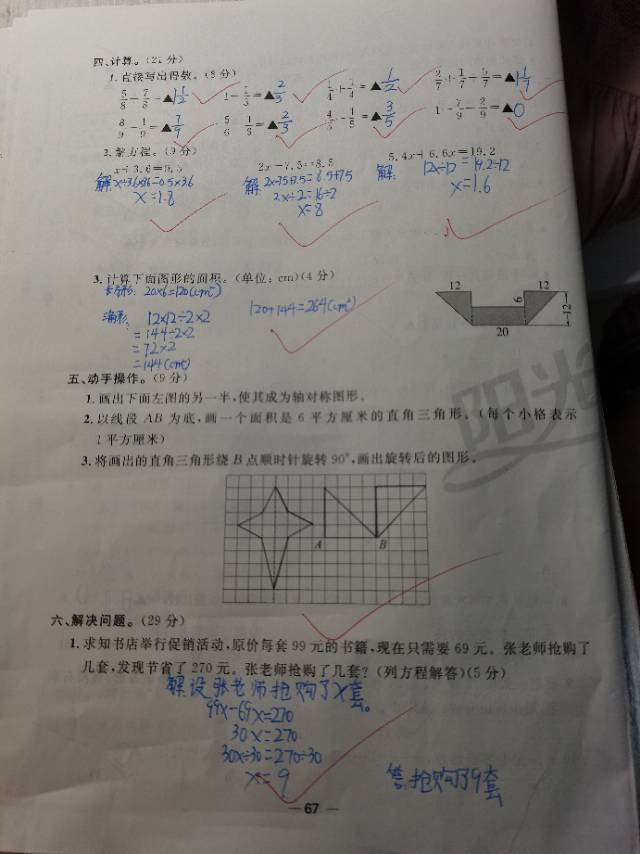 四、计算。(21 分)
1. 直接写出得数。(8 分)
5/8+7/8=▲1 1/2 1-1/3=▲2/3 1/4+1/4=▲1/2 2/7+1/7+5/7=▲1 1/7
8/9-1/9=▲7/9 5/6-1/6=▲2/3 4/5-1/5=▲3/5 1-7/9-2/9=▲0
2. 解方程。(9 分)
x÷3.6=0.5 2x-7.5=8.5 5.4x+6.6x=19.2
解: x÷3.6×3.6=0.5×3.6 解: 2x-7.5+7.5=8.5+7.5 解: 12x÷12=19.2÷12
x=1.8 2x÷2=16÷2 x=1.6
x=8
3. 计算下面图形的面积。(单位: cm)(4 分)
20×6=120(cm²)
12×12÷2×2 120+144=264(cm²)
=144÷2×2
=72×2
=144(cm²)
12 12
6
12
20
五、动手操作。(9 分)
1. 画出下面左图的另一半,使其成为轴对称图形。
2. 以线段 AB 为底,画一个面积是 6 平方厘米的直角三角形。(每个小格表示
1 平方厘米)
3. 将画出的直角三角形绕 B 点顺时针旋转 90°,画出旋转后的图形。
A B
阳光
六、解决问题。(29 分)
1. 求知书店举行促销活动,原价每套 99 元的书籍,现在只需要 69 元。张老师抢购了
几套,发现节省了 270 元。张老师抢购了几套? (列方程解答)(5 分)
解 设张老师抢购了x套。
99x-69x=270
30x=270
30x÷30=270÷30
x=9
答:抢购了9套
— 67 —